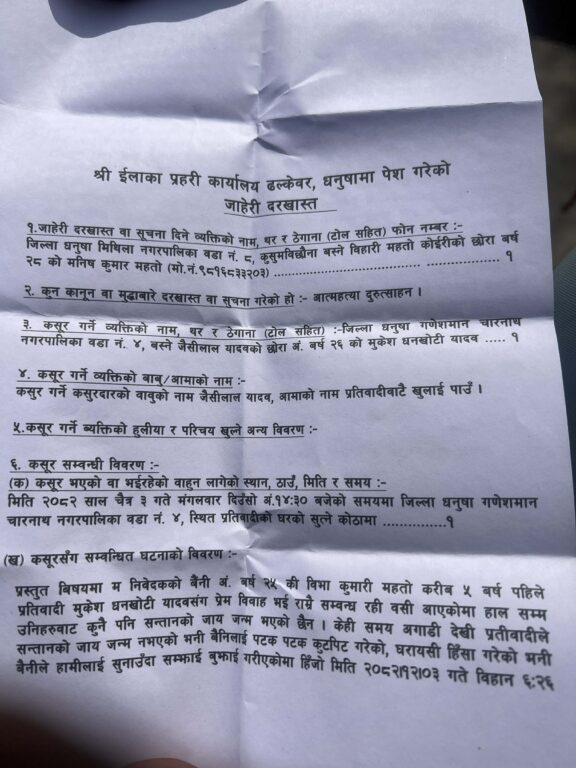 श्री ईलाका प्रहरी कार्यालय ढल्केवर, धनुषामा पेश गरेको
जाहेरी दरखास्त
१.जाहेरी दरखास्त वा सूचना दिने व्यक्तिको नाम, थर र ठेगाना (टोल सहित) फोन नम्बर :-
जिल्ला धनुषा मिथिला नगरपालिका वडा नं. ८, कुसुमविछौना बस्ने विहारी महतो कोईरीको छोरा बर्ष
२८ को मनिष कुमार महतो (मो.नं.९८१६८३३२०३) ........................................ १
२. कुन कानून वा मुद्धाबारे दरखास्त वा सूचना गरेको हो :- आत्महत्या दुरुत्साहन ।
३. कसूर गर्ने व्यक्तिको नाम, थर र ठेगाना (टोल सहित) :-जिल्ला धनुषा गणेशमान चारनाथ
नगरपालिका वडा नं. ४, बस्ने जैसीलाल यादवको छोरा अं. बर्ष २६ को मुकेश धनखोटी यादव ..... १
४. कसुर गर्ने व्यक्तिको बाबु/आमाको नाम :-
कसुर गर्ने कसुरदारको वावुको नाम जैसीलाल यादव, आमाको नाम प्रतिवादीवाटै खुलाई पाउँ ।
५.कसूर गर्ने ब्यक्तिको हुलीया र परिचय खुल्ने अन्य विवरण :-
६. कसूर सम्वन्धी विवरण :-
(क) कसूर भएको वा भईरहेको वाहुन लागेको स्थान, ठाउँ, मिति र समय :-
मिति २०८२ साल चैत्र ३ गते मंगलवार दिउँसो अं.१४:३० बजेको समयमा जिल्ला धनुषा गणेशमान
चारनाथ नगरपालिका वडा नं. ४, स्थित प्रतिवादीको घरको सुत्ने कोठामा ...............१
(ख) कसूरसँग सम्वन्धित घटनाको विवरण :-
प्रस्तुत बिषयमा म निवेदकको बैनी अं. बर्ष २५ की विभा कुमारी महतो करीब ५ बर्ष पहिले
प्रतिवादी मुकेश धनखोटी यादवसंग प्रेम विवाह भई राम्रै सम्वन्ध रही वसी आएकोमा हाल सम्म
उनिहरुवाट कुनै पनि सन्तानको जाय जन्म भएको छैन । केही समय अगाडी देखी प्रतीवादीले
सन्तानको जाय जन्म नभएको भनी बैनिलाई पटक पटक कुटपिट गरेको, घरायसी हिँसा गरेको भनी
बैनीले हामीलाई सुनाउँदा सम्झाई बुझाई गरीएकोमा हिँजो मिति २०८२।१२।०३ गते विहान ६:२६